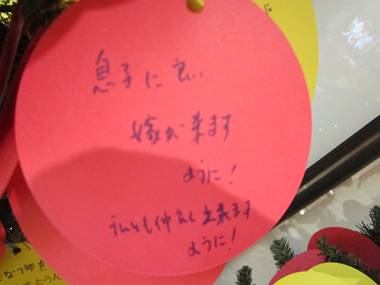 息子に良い
嫁が来ます
ように!
私とも仲良く出来ます
ように!